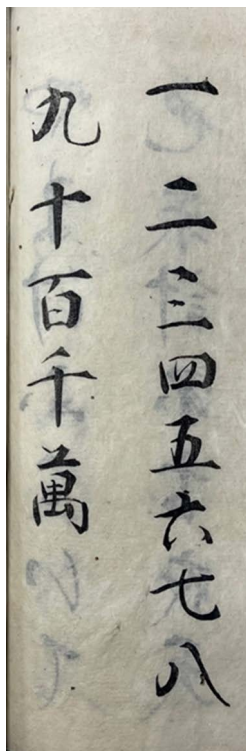 一二三四五六七八
九十百千萬